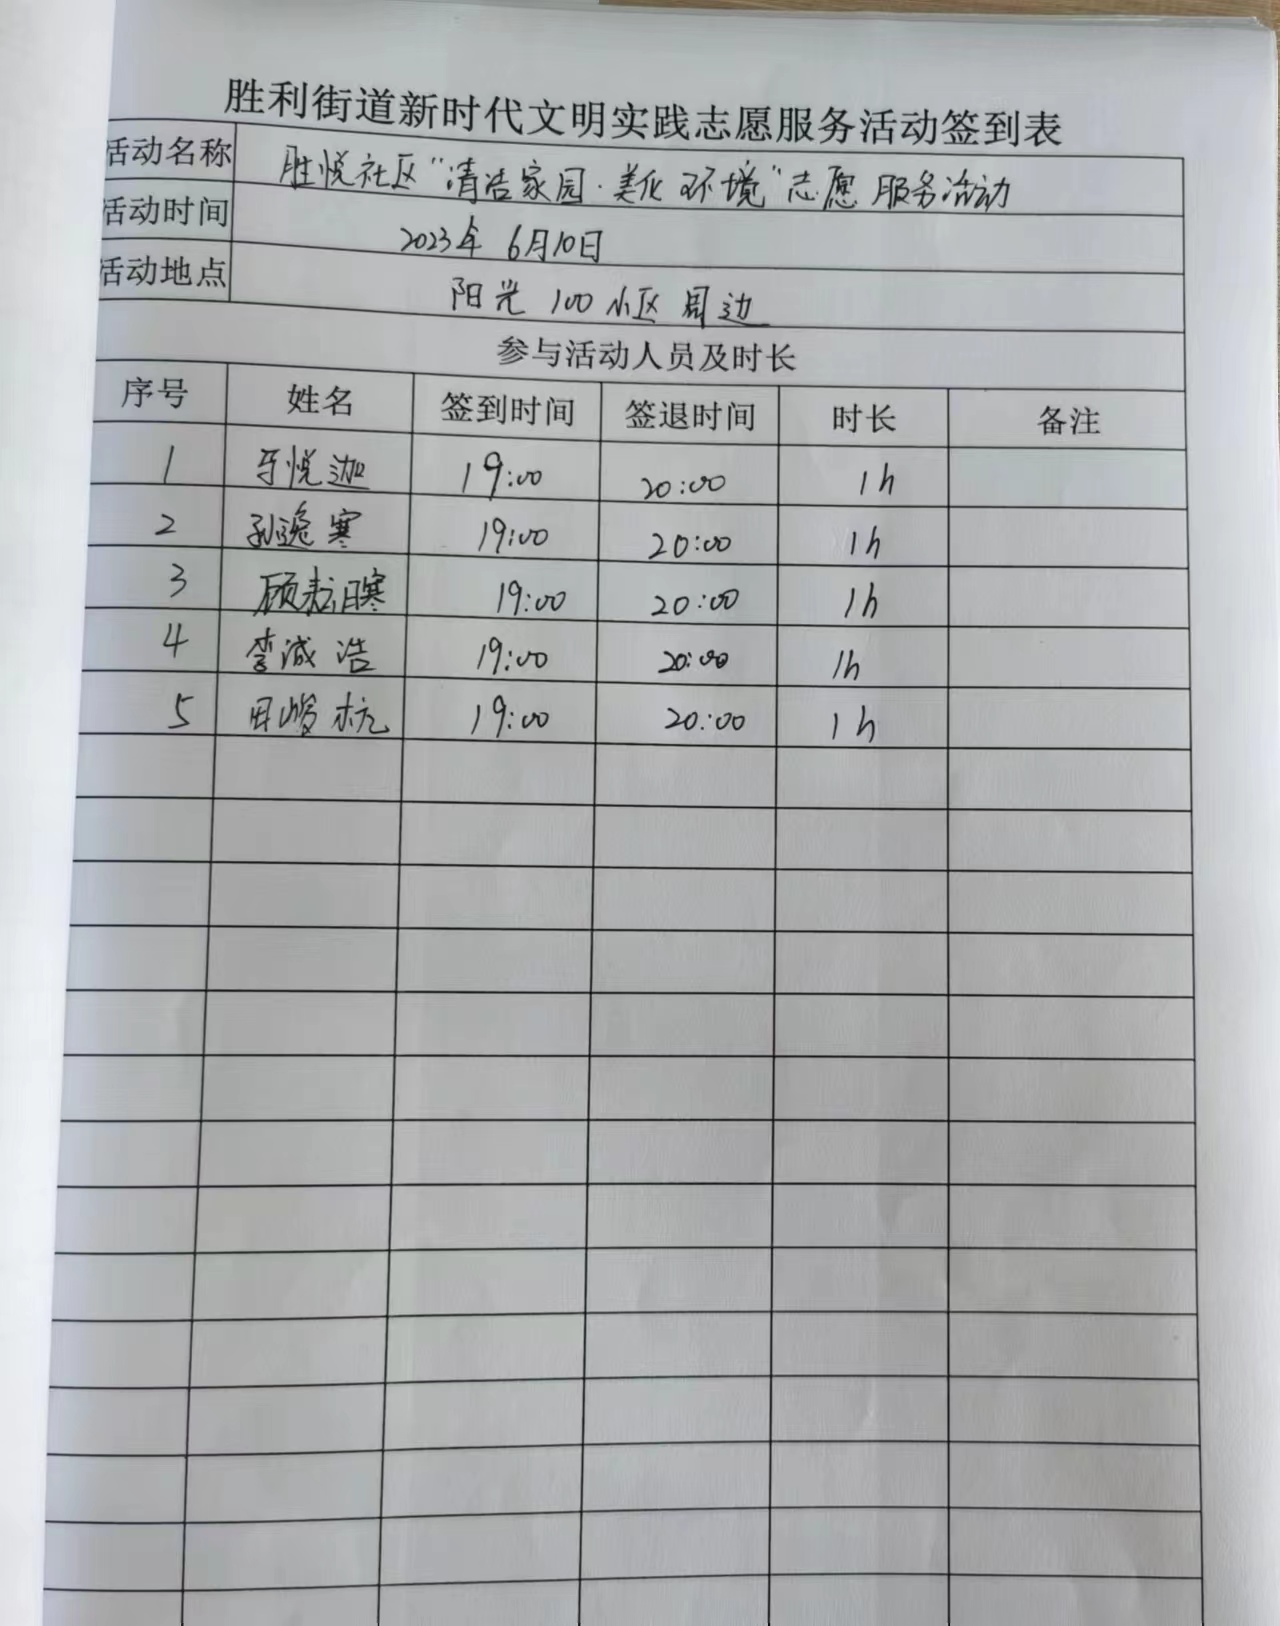 胜利街道新时代文明实践志愿服务活动签到表
活动名称 胜悦社区“清洁家园·美化环境”志愿服务活动
活动时间 2023年6月10日
活动地点 阳光100小区周边
参与活动人员及时长
序号 姓名 签到时间 签退时间 时长 备注
1 牙悦迦 19:00 20:00 1h
2 孙逸寒 19:00 20:00 1h
3 顾 寒 19:00 20:00 1h
4 李诚浩 19:00 20:00 1h
5 田峻杭 19:00 20:00 1h